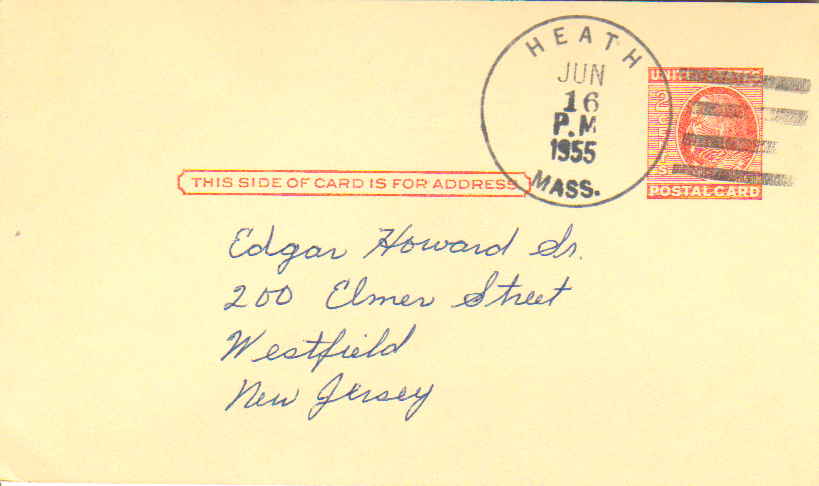 HEATH
JUN
16
P.M
1955
MASS.
POSTAL CARD
THIS SIDE OF CARD IS FOR ADDRESS
Edgar Howard Sr.
200 Elmer Street
Westfield
New Jersey